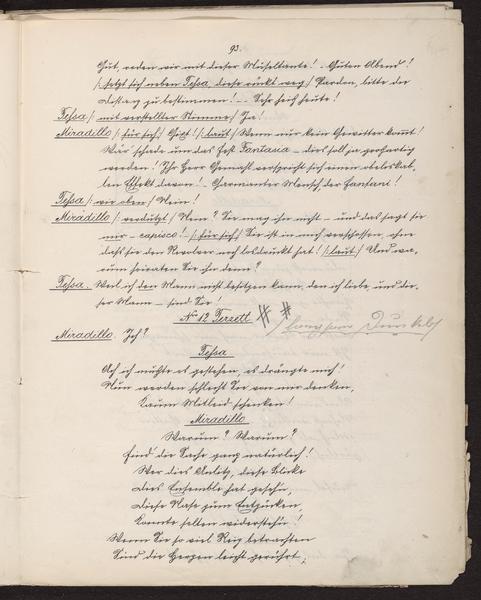 93.
Gut, reden wir mit dieser Museltante! - Guten Abend!
/: setzt sich neben Tessa, diese rückt weg :/ Pardon, bitte die
Distanz zu bestimmen! - - Sehr heiß heute!
Tessa /: mit verstellter Stimme :/ Ja!
Miradillo /: für sich :/ Gut! /: laut :/ Wenn nur kein Gewitter kommt!
Wär' schade um das Fest Fantasia - dies soll ja großartig
werden! Ihr Herr Gemahl verspricht sich einen
Effekt davon! - Charmanter Mensch, der Fanfani!
Tessa /: wie oben :/ Nein!
Miradillo /: verdutzt :/ Nein? Sie mag ihn nicht - und das sagt sie
mir - capisco! - /: für sich :/ Sie ist in mich verschossen, ohne
dass sie den Revolver noch losdruckt hat! /: laut :/ Und wa-
rum heiraten Sie ihn denn?
Tessa. Weil ich den Mann nicht besitzen kann, den ich liebe, und die-
ser Mann - sind Sie!
No 12 Terzett
langsam Dunkel
Miradillo. Ich?
Tessa
Ach ich mußte es gestehen, es drängte mich!
Nun werden schlecht Sie von mir denken,
Kaum Mitleid schenken!
Miradillo
Warum? Warum?
Find die Sache ganz natürlich!
Wer dies Antlitz, diese Blicke
Dies Ensemble hat gesehn,
Diese Nase zum Entzücken,
Konnte selten widerstehn!
Wenn Sie so viel Reiz betrachten
Sind die Herzen leicht gerührt,